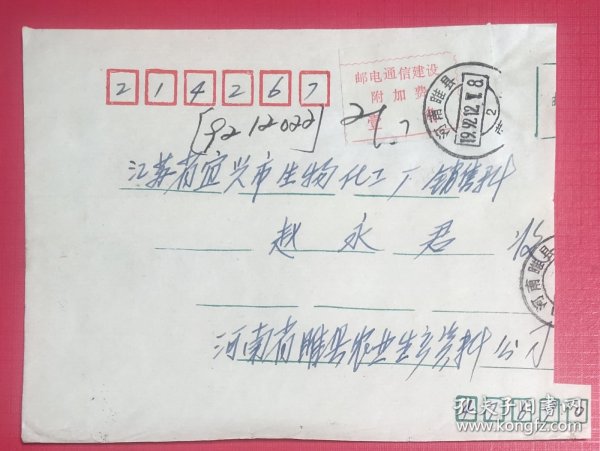 214267
邮电通信建设
附加费
壹
河南睢县
1992.12.18
2
[9212022]
江苏省宜兴市生物化工厂销售科
赵永君 收
河南睢县
河南省睢县农业生产资料公司
孔夫子旧书网
www.kongfz.com